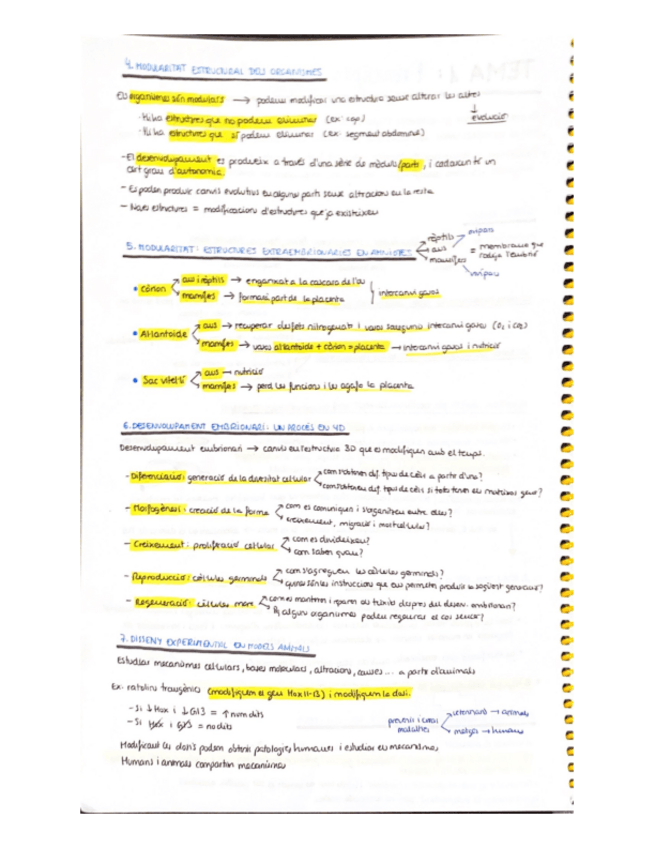 4. MODULARITAT ESTRUCTURAL DELS ORGANISMES
Els organismes són modulars → podem modificar una estructura sense alterar les altres
↓
evolució
· Hi ha estructures que no podem eliminar (ex: cap)
· Hi ha estructures que sí podem eliminar (ex: segment abdominal)
- El desenvolupament es produeix a través d'una sèrie de mòduls/parts, i cadascun té un
cert grau d'autonomia.
- Es poden produir canvis evolutius en alguna part sense alteracions en la resta
- Noves estructures = modificacions d'estructures que ja existeixen
5. MODULARITAT: ESTRUCTURES EXTRAEMBRIONÀRIES EN AMNIOTES
rèptils
aus
mamífers
ovípars
vivípars
= membranes que
rodeja l'embrió
• Còrion
aus i rèptils → enganxat a la càscara de l'ou
mamífers → formarà part de la placenta
intercanvi gasos
• Al·lantoide
aus → recuperar desfets nitrogenats i vasos sanguinis intercanvi gasos (O2 i CO2)
mamífers → vasos al·lantoide + còrion = placenta → intercanvi gasos i nutrició
• Sac vitel·lí
aus → nutrició
mamífers → perd les funcions i les agafa la placenta
6. DESENVOLUPAMENT EMBRIONARI: UN PROCÉS EN 4D
Desenvolupament embrionari → canvis en l'estructura 3D que es modifiquen amb el temps.
- Diferenciació: generació de la diversitat cel·lular
com s'obtenen dif. tipus de cèls a partir d'una?
com s'obtenen dif. tipus de cèls si totes tenen els mateixos gens?
- Morfogènesi: creació de la forma
com es comuniquen i s'organitzen entre elles?
creixement, migració i mort cel·lular?
- Creixement: proliferació cel·lular
com es divideixen?
com saben quan?
- Reproducció: cèl·lules germinals
com s'agreguen les cèl·lules germinals?
quines són les instruccions que els permeten produir la següent generació?
- Regeneració: cèl·lules mare
com es mantenen i reparen els teixits després del desen. embrionari?
Pq alguns organismes poden regenerar el cos sencer?
7. DISSENY EXPERIMENTAL EN MODELS ANIMALS
Estudiar mecanismes cel·lulars, bases moleculars, alteracions, causes... a partir d'animals
Ex: ratolins transgènics (modifiquem el gens Hox11-13) i modifiquem la dosi.
- Si ↓Hox i ↓Gli3 = ↑num dits
- Si Hox i Gli3 = no dits
prevenir i curar
malalties
veterinaris → animals
metges → humans
Modificant les dosis podem obtenir patologies humanes i estudiar els mecanismes
Humans i animals comparten mecanismes